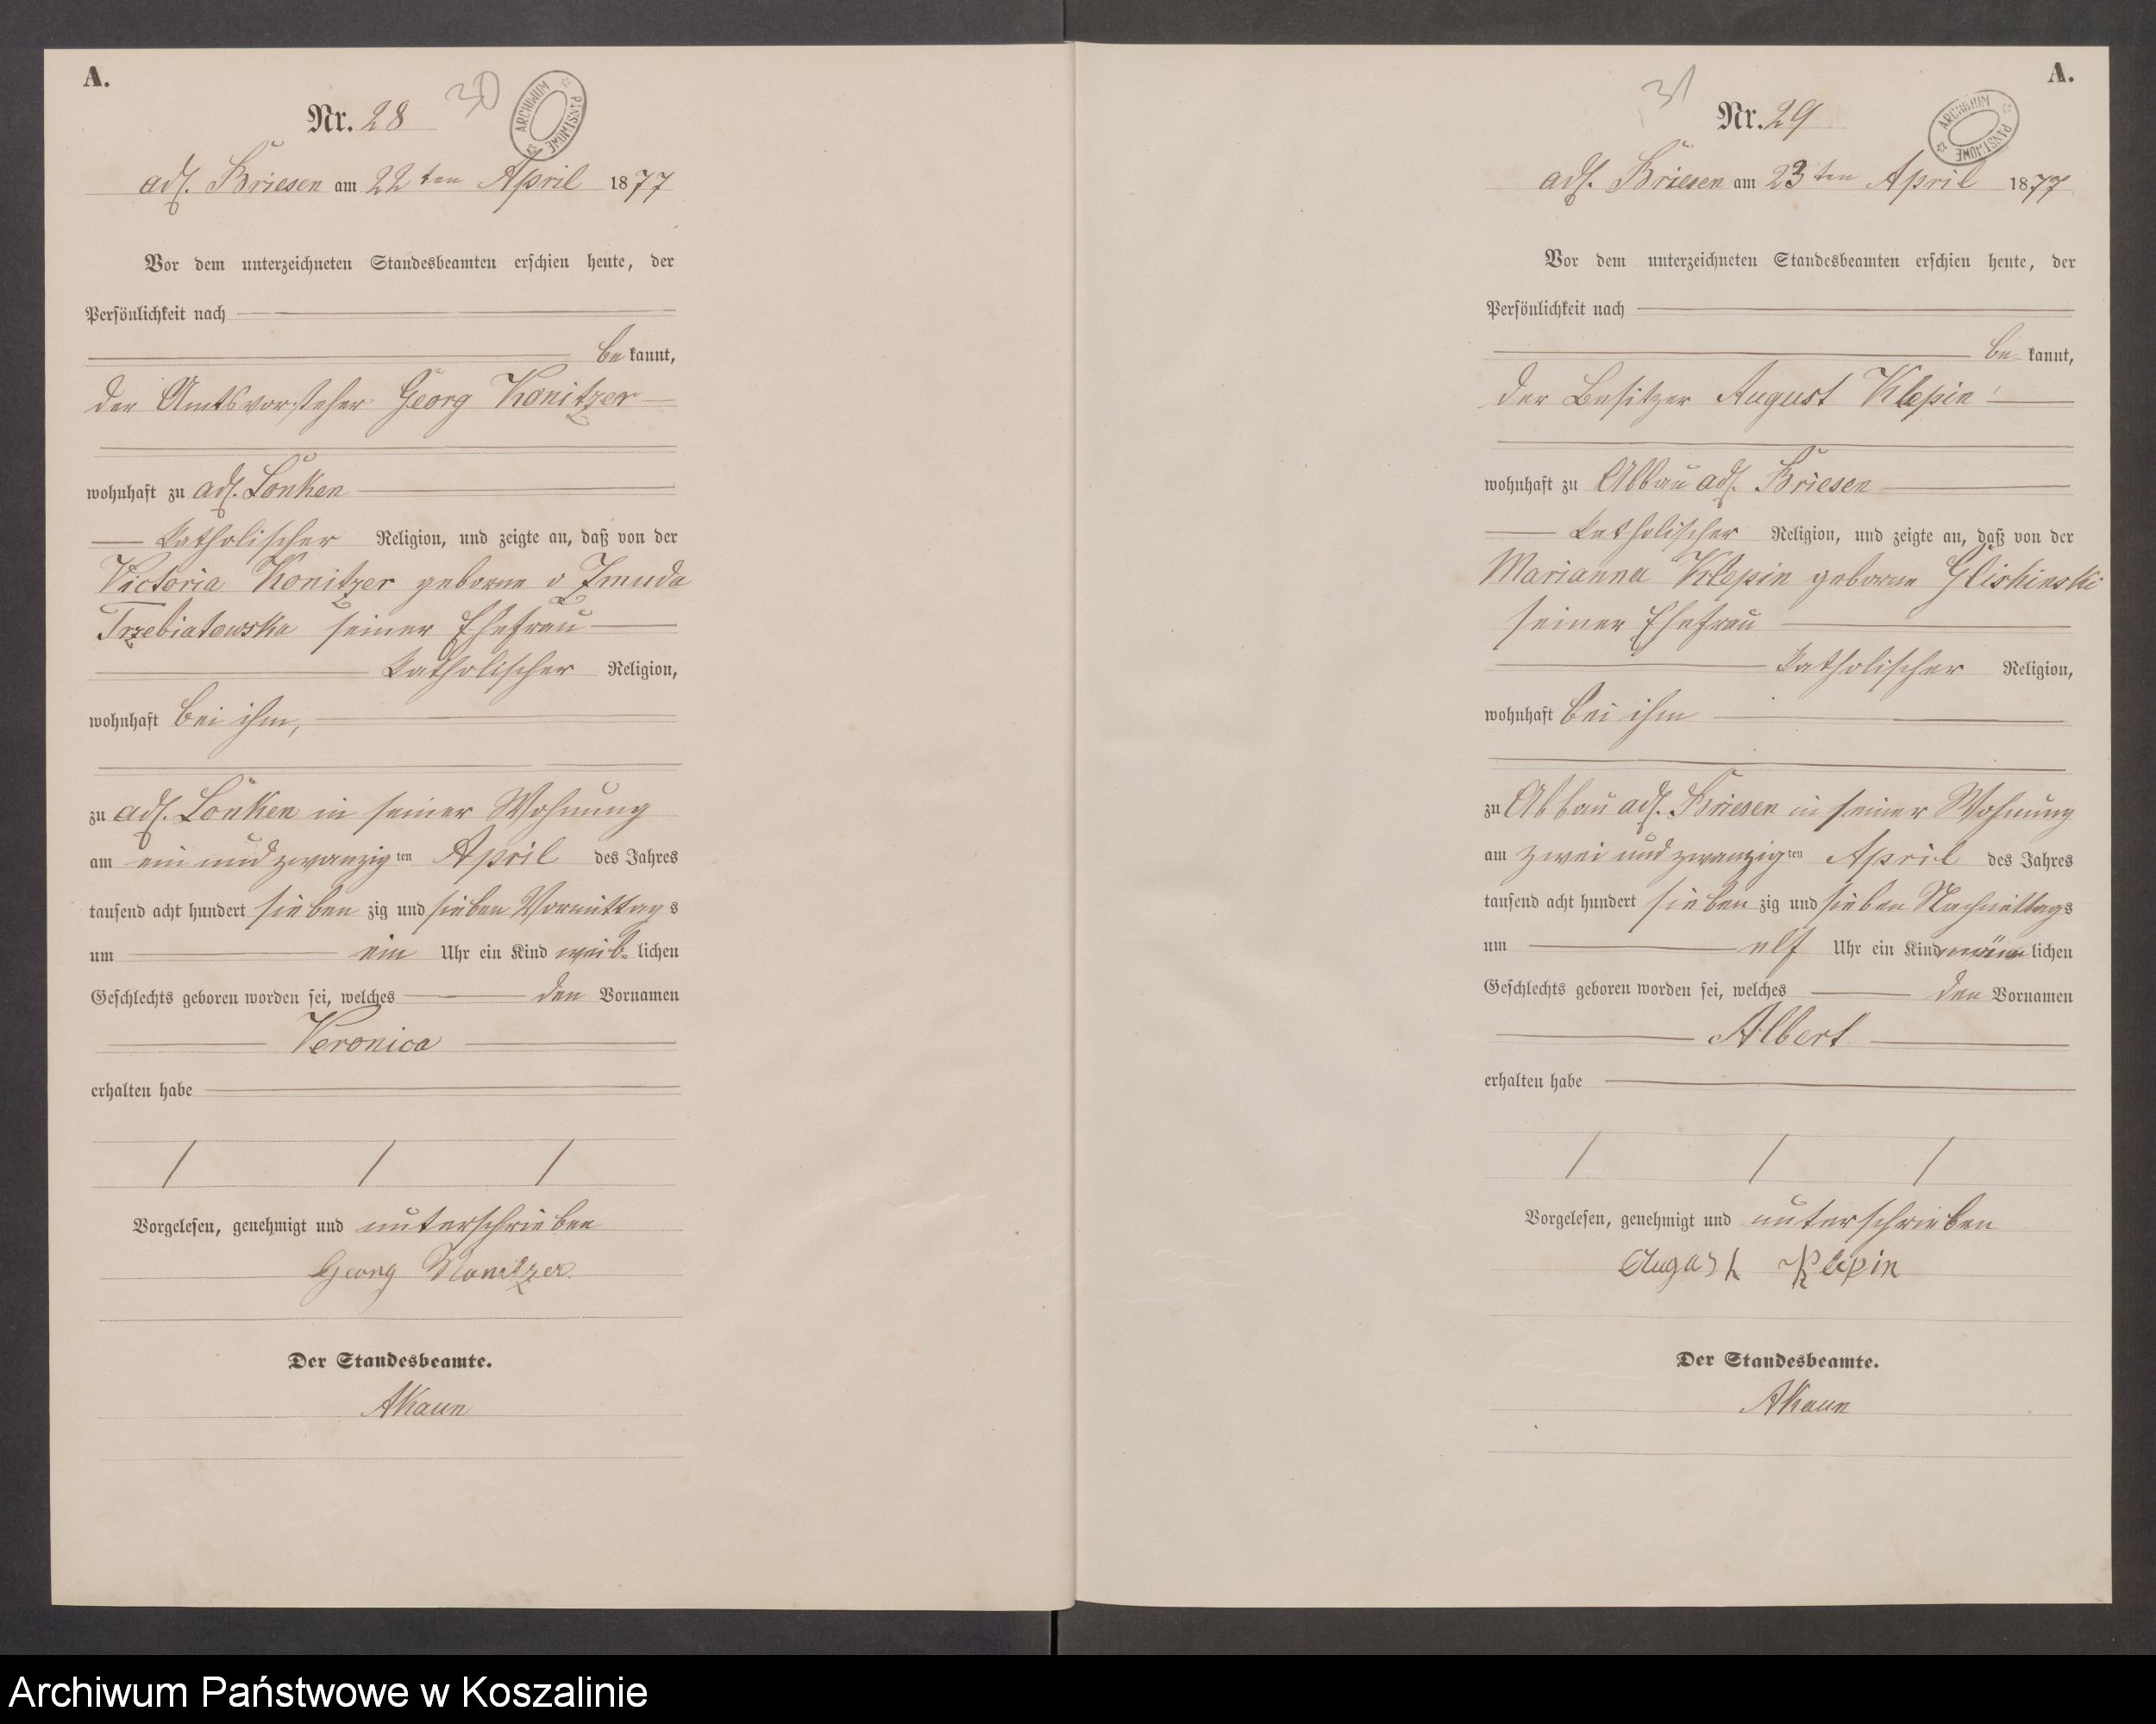 A.
Nr. 28
30
ARCHIWUM PAŃSTWOWE
adl. Briesen am 22ten April 1877
Vor dem unterzeichneten Standesbeamten erschien heute, der
Persönlichkeit nach
be kannt,
der Amtsvorsteher Georg Konitzer
wohnhaft zu adl. Lonken
katholischer Religion, und zeigte an, daß von der
Victoria Konitzer geborne v Zmuda
Trzebiatowska seiner Ehefrau
katholischer Religion,
wohnhaft bei ihm,
zu adl. Lonken in seiner Wohnung
am ein und zwanzig ten April des Jahres
tausend acht hundert sieben zig und sieben Vormittag s
um ein Uhr ein Kind weib- lichen
Geschlechts geboren worden sei, welches den Vornamen
Veronica
erhalten habe
Vorgelesen, genehmigt und unterschrieben
Georg Konitzer
Der Standesbeamte.
AKaun
A.
31
Nr. 29
ARCHIWUM PAŃSTWOWE
adl. Briesen am 23ten April 1877
Vor dem unterzeichneten Standesbeamten erschien heute, der
Persönlichkeit nach
be kannt,
der Besitzer August Klepin
wohnhaft zu Abbau adl. Briesen
katholischer Religion, und zeigte an, daß von der
Marianna Klepin geborne Glishinski
seiner Ehefrau
katholischer Religion,
wohnhaft bei ihm
zu Abbau adl. Briesen in seiner Wohnung
am zwei und zwanzig ten April des Jahres
tausend acht hundert sieben zig und sieben Nachmittags
um elf Uhr ein Kind männ lichen
Geschlechts geboren worden sei, welches den Vornamen
Albert
erhalten habe
Vorgelesen, genehmigt und unterschrieben
August Klepin
Der Standesbeamte.
AKaun
Archiwum Państwowe w Koszalinie